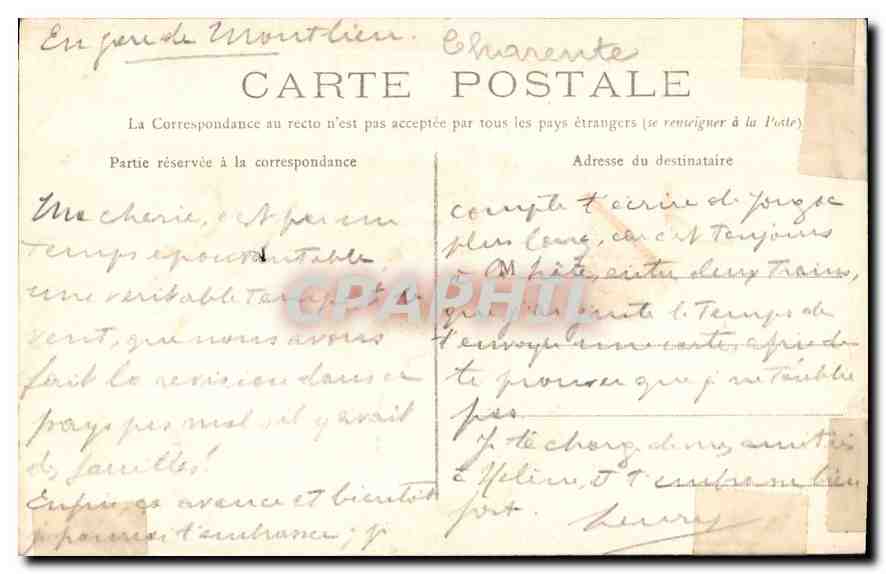 En gare de Montlieu. Charente
CARTE POSTALE
La Correspondance au recto n'est pas acceptée par tous les pays étrangers (se renseigner à la Poste)
Partie réservée à la correspondance
Ma cherie, c'est par un
temps epouvantable,
une veritable tempête de
vent, que nous avons
fait la revision dans ce
pays pas mal s'il y avait
des
Enfin, ça avance et bientot
je pourrai t'embrasser ; je
Adresse du destinataire
compte t'écrire de Jonzac
plus long, car c'est toujours
à la hâte, entre deux trains,
que j'ai juste le temps de
t'envoyer une carte, afin de
te prouver que je ne t'oublie
pas.
Je te charge de mes amitiés
à Helène, et t'embrasse bien
fort. Henry
CPAPHIL